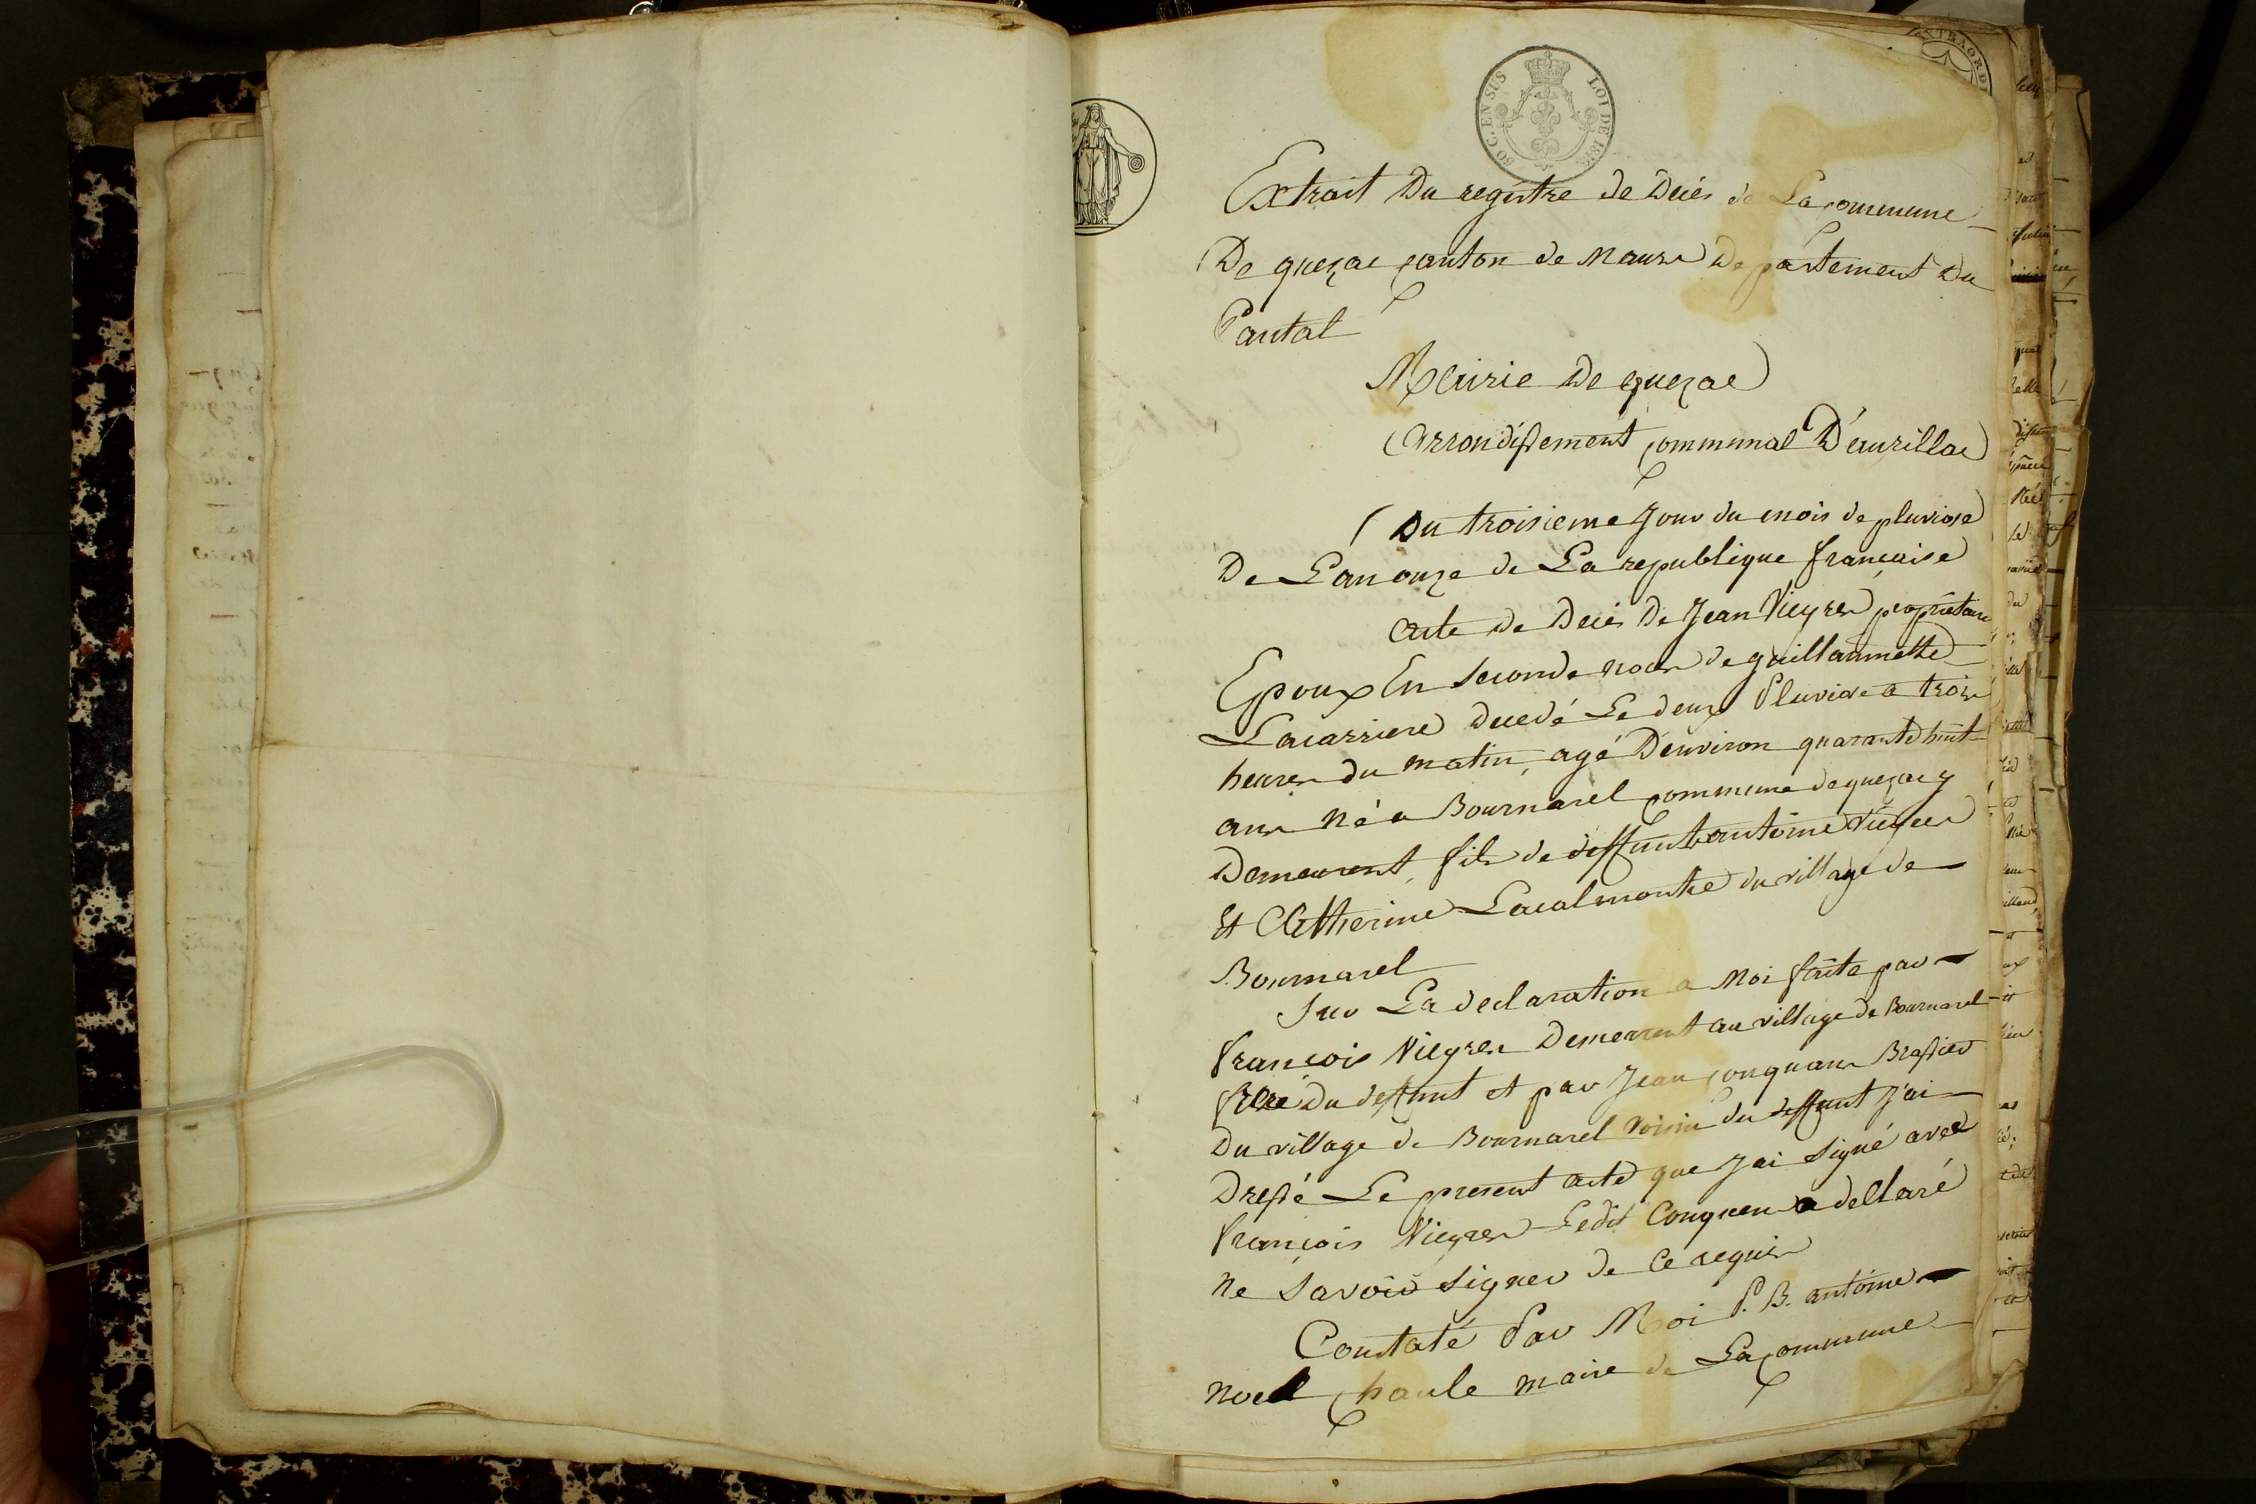 50 C. EN SUS
LOI DE 1816
Extrait Du registre de Deces de La commune
De quezac canton de Maurs Departement Du
Cantal
Mairie De quezac
Arrondissement communal D'aurillac
Du troisieme Jour du mois de pluviose
De L'an onze de La republique francaise
acte de Deces De Jean Vieyres propriétaire
Epoux En seconde noces de guillaumette
Lacarriere decedé Le deux Pluviose a trois
heures du matin, agé D'environ quarante huit
ans né a Bournarel commune de quezac y
Demeurent, fils de deffunt antoine Vieyres
Et Catherine Lacalmontie du village de
Bournarel
Sur La declaration a Moi faite par
françois Vieyres Demeurent au village de Bournarel
frere Du deffunt et par Jean conquans Brassier
Du village de Bournarel voisin du deffunt J'ai
Dressé Le present acte que J'ai signé avec
françois Vieyres Ledit Conquens a declaré
Ne savoir signer de ce requis
Constaté Par Moi P. B. antoine
noel chaule maire de La commune